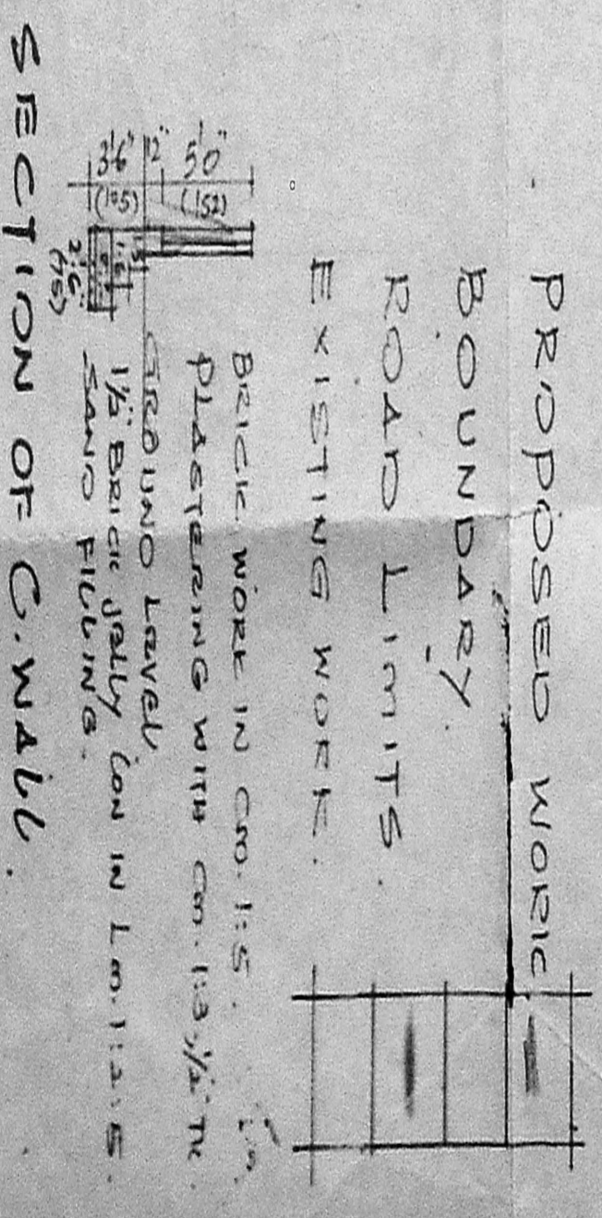 PROPOSED WORK
BOUNDARY.
ROAD LIMITS.
EXISTING WORK.
BRICK. WORK IN Cm. 1:5.
PLASTERING WITH Cm. 1:3, ½" TK.
GROUND LEVEL
1½" BRICK JELLY CON IN Lm. 1:2:5.
SAND FILLING.
5'0"
(152)
12"
3'6"
(105)
2'6"
(75)
SECTION OF C. WALL.